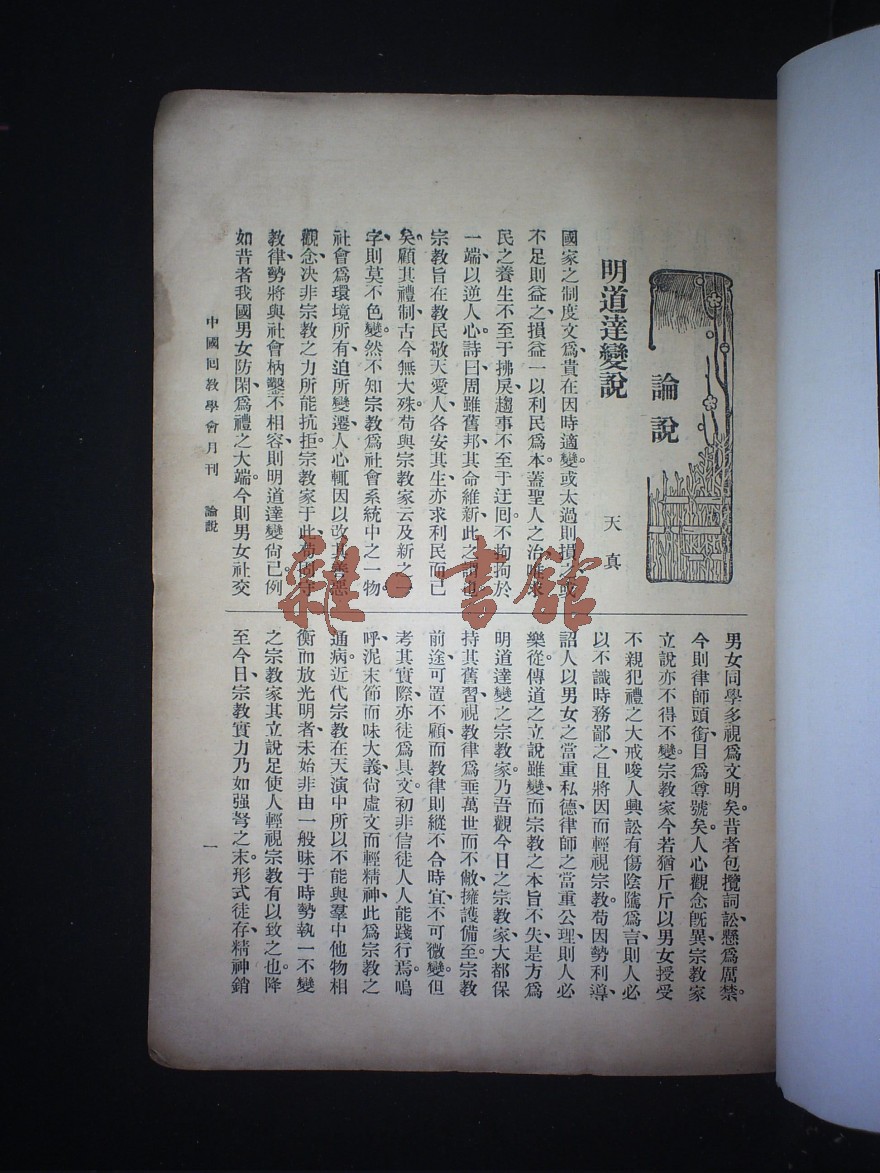 論說
明道達變說
天真
國家之制度文、爲貴在因時適變。或太過則損之、或
不足則益之、損益一以利民爲本。蓋聖人之治、唯求
民之養生不至于拂戾、趨事不至于迂囘。不拘拘於
一端、以逆人心。詩曰周雖舊邦、其命維新、此之謂也
宗敎旨在敎民敬天愛人、各安其生、亦求利民而已
矣。顧其禮制古今無大殊。苟與宗敎家云及新之一
字、則莫不色變。然不知宗敎爲社會系統中之一物。
社會爲環境所、有迫所變遷、人心輒因以改其善惡
觀念、決非宗敎之力所能抗拒。宗敎家于此、苟固守
敎律、勢將與社會枘鑿不相容、則明道達變尙已。例
如昔者我國男女防閑、爲禮之大端。今則男女社交
男女同學多視爲文明矣。昔者包攬詞訟、懸爲厲禁。
今則律師頭銜、目爲尊號矣。人心觀念旣異、宗敎家
立說亦不得不變。宗敎家今若猶斤斤以男女授受
不親犯禮之大戒、唆人興訟有傷陰隲爲言、則人必
以不識時務鄙之、且將因而輕視宗敎。苟因勢利導、
詔人以男女之當重私德、律師之當重公理、則人必
樂從。傳道之立說雖變、而宗敎之本旨不失、是方爲
明道達變之宗敎家。乃吾觀今日之宗敎家、大都保
持其舊習、視敎律爲垂萬世而不敝、擁護備至。宗敎
前途、可置不顧、而敎律則縱不合時宜、不可微變。但
考其實際、亦徒爲具文、初非信徒人人能踐行焉。嗚
呼、泥末節而昧大義、尙虛文而輕精神、此爲宗敎之
通病。近代宗敎在天演中所以不能與羣中他物相
衡而放光明者、未始非由一般昧于時勢執一不變
之宗敎家、其立說足使人輕視宗敎有以致之也。降
至今日、宗敎實力乃如强弩之末。形式徒存、精神銷
中國囘敎學會月刊　論說
一
雜·書館